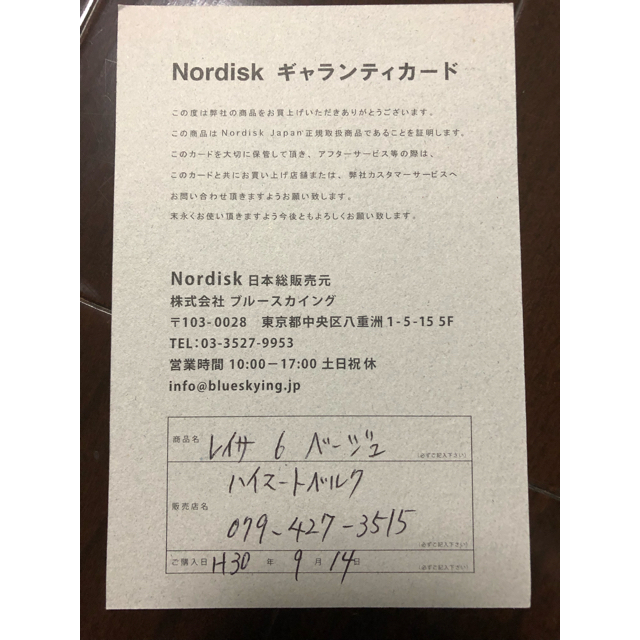 Nordisk ギャランティカード
この度は弊社の商品をお買上げいただきありがとうございます。
この商品は Nordisk Japan 正規取扱商品であることを証明します。
このカードを大切に保管して頂き、アフターサービス等の際は、
このカードと共にお買い上げ店舗または、弊社カスタマーサービスへ
お問い合わせ頂きますようお願い致します。
末永くお使い頂きますよう今後ともよろしくお願い致します。
Nordisk 日本総販売元
株式会社 ブルースカイング
〒103-0028 東京都中央区八重洲 1-5-15 5F
TEL:03-3527-9953
営業時間 10:00-17:00 土日祝 休
info@blueskying.jp
商品名 レイサ 6 ベージュ (必ずご記入下さい)
ハイマートベルク
販売店名 079-427-3515 (必ずご記入下さい)
ご購入日 H30 年 9 月 14 日 (必ずご記入下さい)